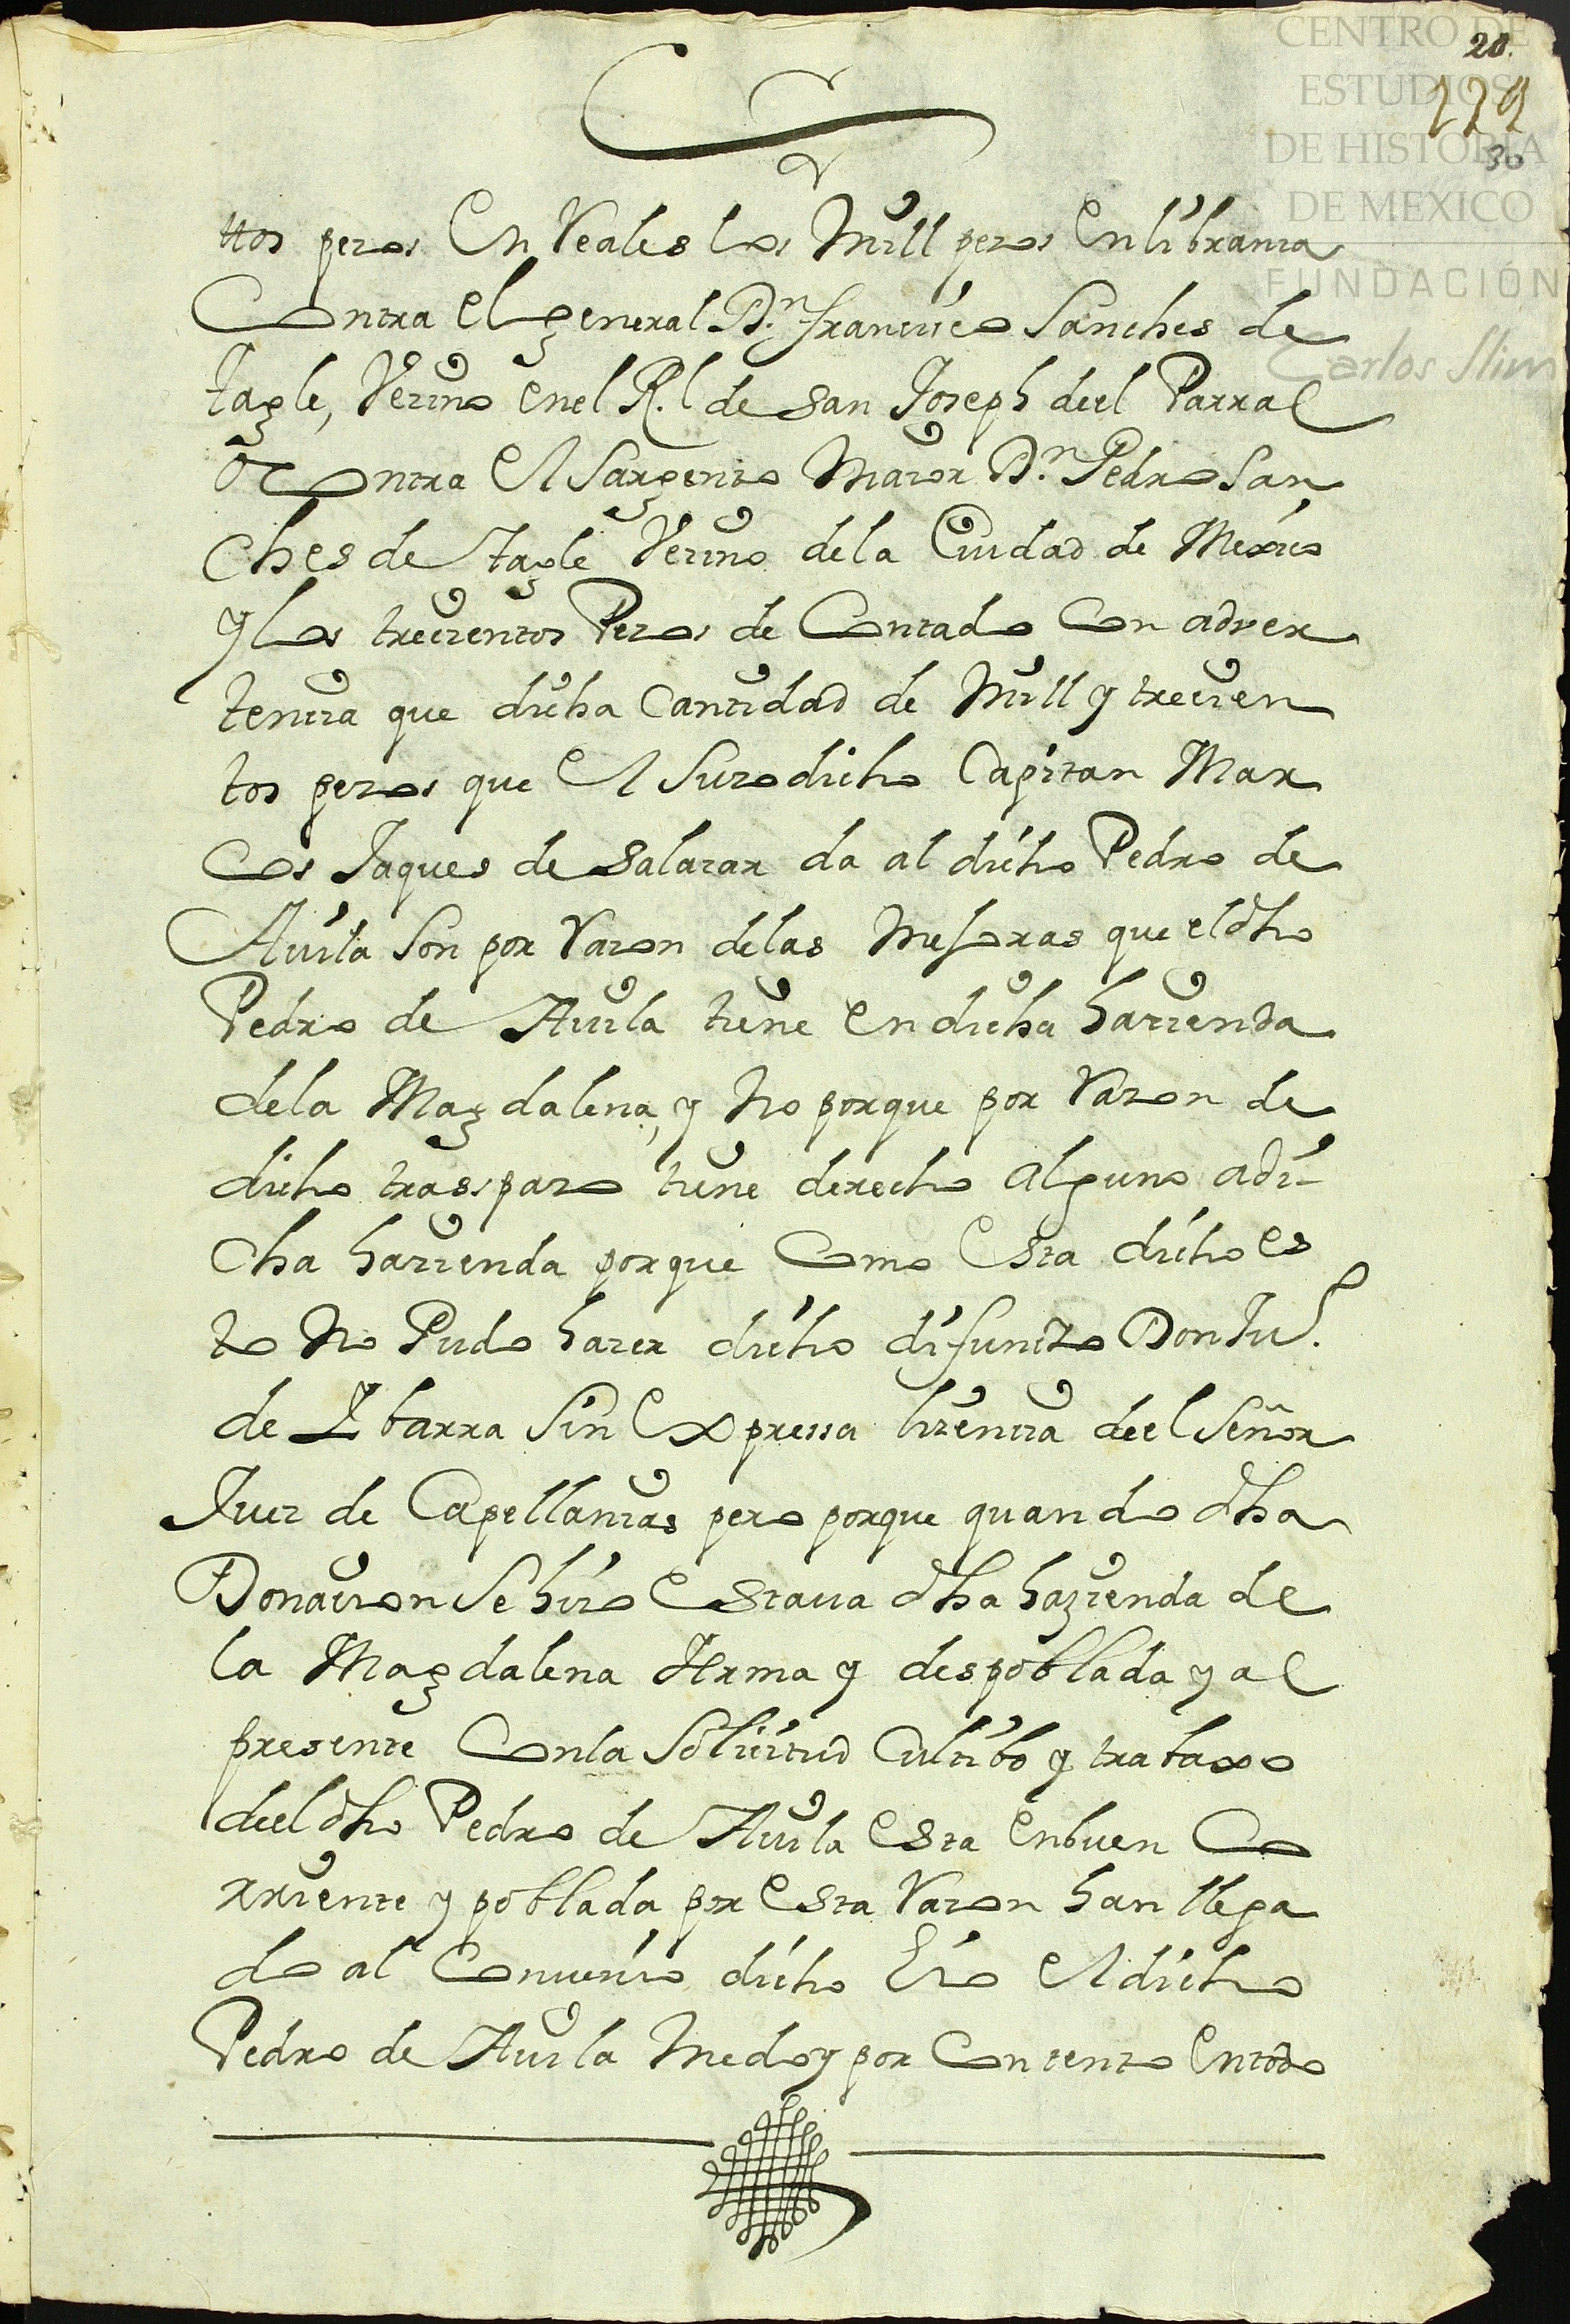 CENTRO DE
ESTUDIOS
DE HISTORIA
DE MEXICO
FUNDACIÓN
Carlos Slim
20.
30
ttos pezos En Reales los Mill pezos En libranza
Contra El general Dn. francisco Sanches de
tagle, Vezino en el Rl. de San Joseph deel Parral
O Contra El Sargento Maior Dn. Pedro San
Ches de tagle Vezino de la Ciudad de Mexico
y los trecientos Pezos de Contado Con adver
tencia que dicha Cantidad de Mill y trecien
tos pezos que El Suzodicho Capitan Mar
Cos Jaques de Salazar da al dicho Pedro de
Auila Son por Razon de las Mejoras que el dho
Pedro de Auila tiene En dicha hazienda
de la Magdalena, y No porque por Razon de
dicho trasspazo tiene derecho alguno a di-
Cha hazienda porque Como Esta dicho es
to No Pudo hazer dicho difuncto Don Ju.
de Ybarra Sin Expressa lizencia deel Señor
Juez de Capellanias pero porque quando dha
Donacion Se hizo Estaua dha hazienda de
la Magdalena Yerma y despoblada y al
presente Con la Solicitud Cultibo y trabaxo
deel dho Pedro de Auila Esta En buen Co
rriente y poblada por Esta Razon han llega
do al Conuenio dicho Eio El dicho
Pedro de Auila Me doy por Contento En todo